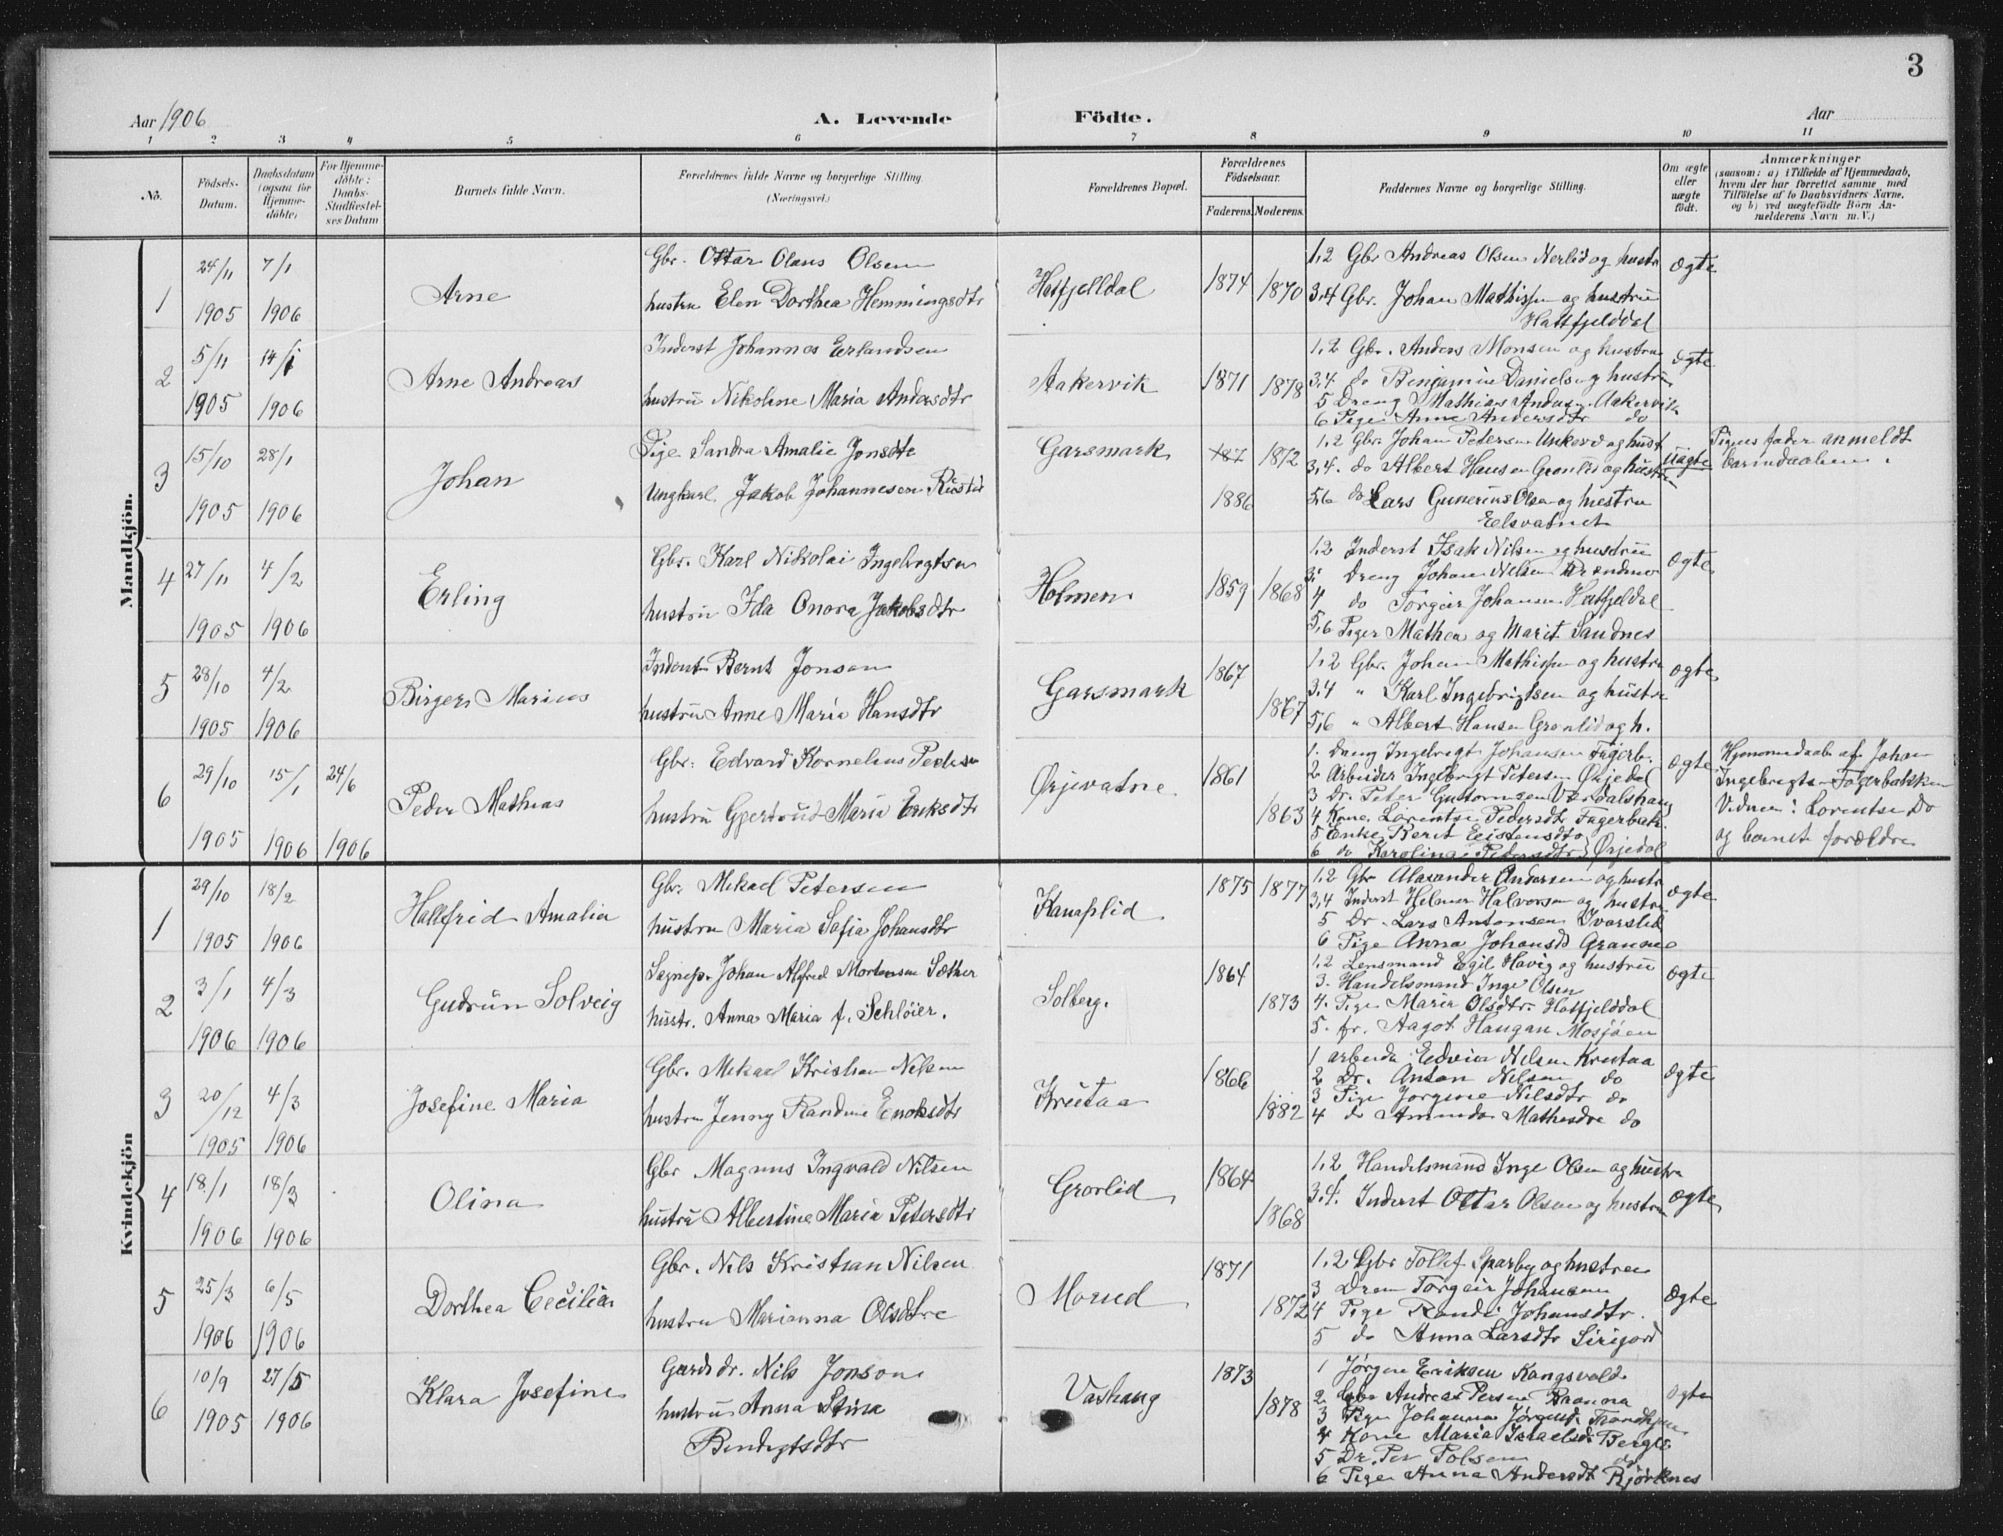 3
Aar 1906
A. Levende Födte.
Aar
1 2 3 4 5 6 7 8 9 10 11
No.
Födsels-Datum.
Daabsdatum (ogsaa for Hjemme-döbte)
For Hjemme-döbte: Daabs-Stadfæstel-ses Datum
Barnets fulde Navn.
Forældrenes fulde Navne og borgerlige Stilling (Næringsvei.)
Forældrenes Bopæl.
Forældrenes Födselsaar.
Faderens. Moderens.
Faddernes Navne og borgerlige Stilling.
Om ægte eller uægte födt.
Anmærkninger
(saasom: a) i Tilfælde af Hjemmedaab,
hvem der har forrettet samme med
Tilföielse af to Daabsvidners Navne.
og b) ved uægtefödte Börn An-
melderens Navn m. V.)
Mandkjön.
1 24/11 1905 7/1 1906 Arne
Gbr. Ottar Olaus Olsen
hustru Elen Dorthea Hemmingsdtr
Hatfjelldal 1874 1870
1,2 Gbr Andreas Olsen Nerlid og hustr
3,4 Gbr. Johan Mathissen og hustru
Hattfjelddal
ægte
2 5/11 1905 14/1 1906 Arne Andreas
Inderst Johannes Erlandsen
hustru Nikoline Maria Andersdtr
Aakervik 1871 1878
1,2 Gbr. Anders Monsen og hustru
3,4. do Benjamin Daniels og hustru
5 Dreng Mathias Anders. Aakervik
6 Pige Anne Andersdtr do
ægte
3 15/10 1905 28/1 1906 Johan
Pige Sandra Amalie Jonsdtr
Ungkarl Jakob Johannesen
Garsmark 187 1872
1886
1,2 Gbr. Johan Petersen Unkervd og hust
3,4. do Albert Hansen Grønlid og hustru
5,6 do Lars Gunerius Olsen og hustru
Elsvatnet
uægte
Pigens fader anmeldt
barnedaaben.
4 27/11 1905 4/2 1906 Erling
Gbr. Karl Nikolai Ingebrigtsen
hustru Ida Onora Jakobsdtr
Holmen 1859 1868
1,2 Inderst Isak Nilsen og hustru
3. Dreng Johan Nilsen
4 do Torgeir Johansen Hatfjeldal
5,6 Piger Mathea og Marit Sandnes
ægte
5 28/10 1905 4/2 1906 Birger Marius
Inderst Bernt Jonsen
hustru Anne Maria Hansdtr
Garsmark 1867
1867
1,2 Gbr. Johan Mathissen og hustru
3,4 " Karl Ingebrigtsen og hustru
5,6 " Albert Hansen Grønlid og h.
ægte
6 29/10 1905 15/1 1906 24/6 1906 Peder Mathias
Gbr. Edvard Kornelius Peders
hustru Gjertrud Maria Eriksdtr
Ørjevatne. 1861
1863
1. Dreng Ingebrigt Johansen Fagerb.
2 Arbeider Ingebrigt Petersen Ørjedal
3 Dr. Peter Guttormsen
4 Kone Lorentse Pedersdtr Fagerbak.
5 Enke Berit Eistensdtr
6 do Karolina Pedersdtr } Ørjedal
ægte
Hjemmedaab af Johan
Ingebrigts. Fagerbakken
Vidner: Lorentse Do
og barnets forældre
Kvindekjön
1 29/10 1905 18/2 1906 Hallfrid Amalia
Gbr. Mikael Petersen
hustru Maria Sofia Johansdtr
1875 1877
1,2 Gbr Alexander Andersen og hustr
3,4 Inderst Helmer Halvorsen og hustru
5 Dr. Lars Antonsen Ivarslid
6 Pige Anna Johansd Granmo
ægte
2 3/1 1906 4/3 1906 Gudrun Solveig
Sognep. Johan Alfred Mortensen Sæther
hustr. Anna Maria f. Schlöier.
Solberg. 1864
1873
1,2 Lensmand Egil Havig og hustru
3. Handelsmand Inge Olsen
4. Pige Maria Olsdtr. Hatfjelddal
5. fr. Aagot Haugan Mosjöen
ægte
3 20/12 1905 4/3 1906 Josefine Maria
Gbr. Mikael Kristian Nilsen
hustru Jenny Randine Enoksdtr
Krutaa 1866
1882
1 arbeider Edvin Nilsen Krutaa
2 Dr. Anton Nilsen do
3 Pige Jorgine Nilsdtr do
4 do Amanda Mathisdtr do
ægte
4 18/1 1906 18/3 1906 Olina
Gbr Magnus Ingvald Nilsen
hustru Albertine Maria Petersdtr
Grorlid 1864
1868
1,2 Handelsmand Inge Olsen og hustru
3,4. Inderst Ottar Olsen og hustru
ægte
5 25/3 1906 6/5 1906 Dorthea Cecilia
Gbr. Nils Kristian Nilsen
hustru Marianna Olsdtre
Morud 1871
1872
1,2 Gbr Tollef Sparby og hustru
3 Dren Torgeir Johansen
4 Pige Randi Johansdtr.
5 do Anna Larsdtr Sirigord
ægte
6 10/9 1905 27/5 1906 Klara Josefine
Gards dr. Nils Jonson
hustru Anna Stina
Bendigtsdtr
Vashaug 1873
1878
1 Jörgen Eriksen Kongsvold
2 Gbr Andreas Persen
3 Pige Johanna Trondhjem
4 Kone Maria Israelsd. Berglie
5 Dr. Per Tolsen do
6 Pige Anna Andersdt Björknes
ægte